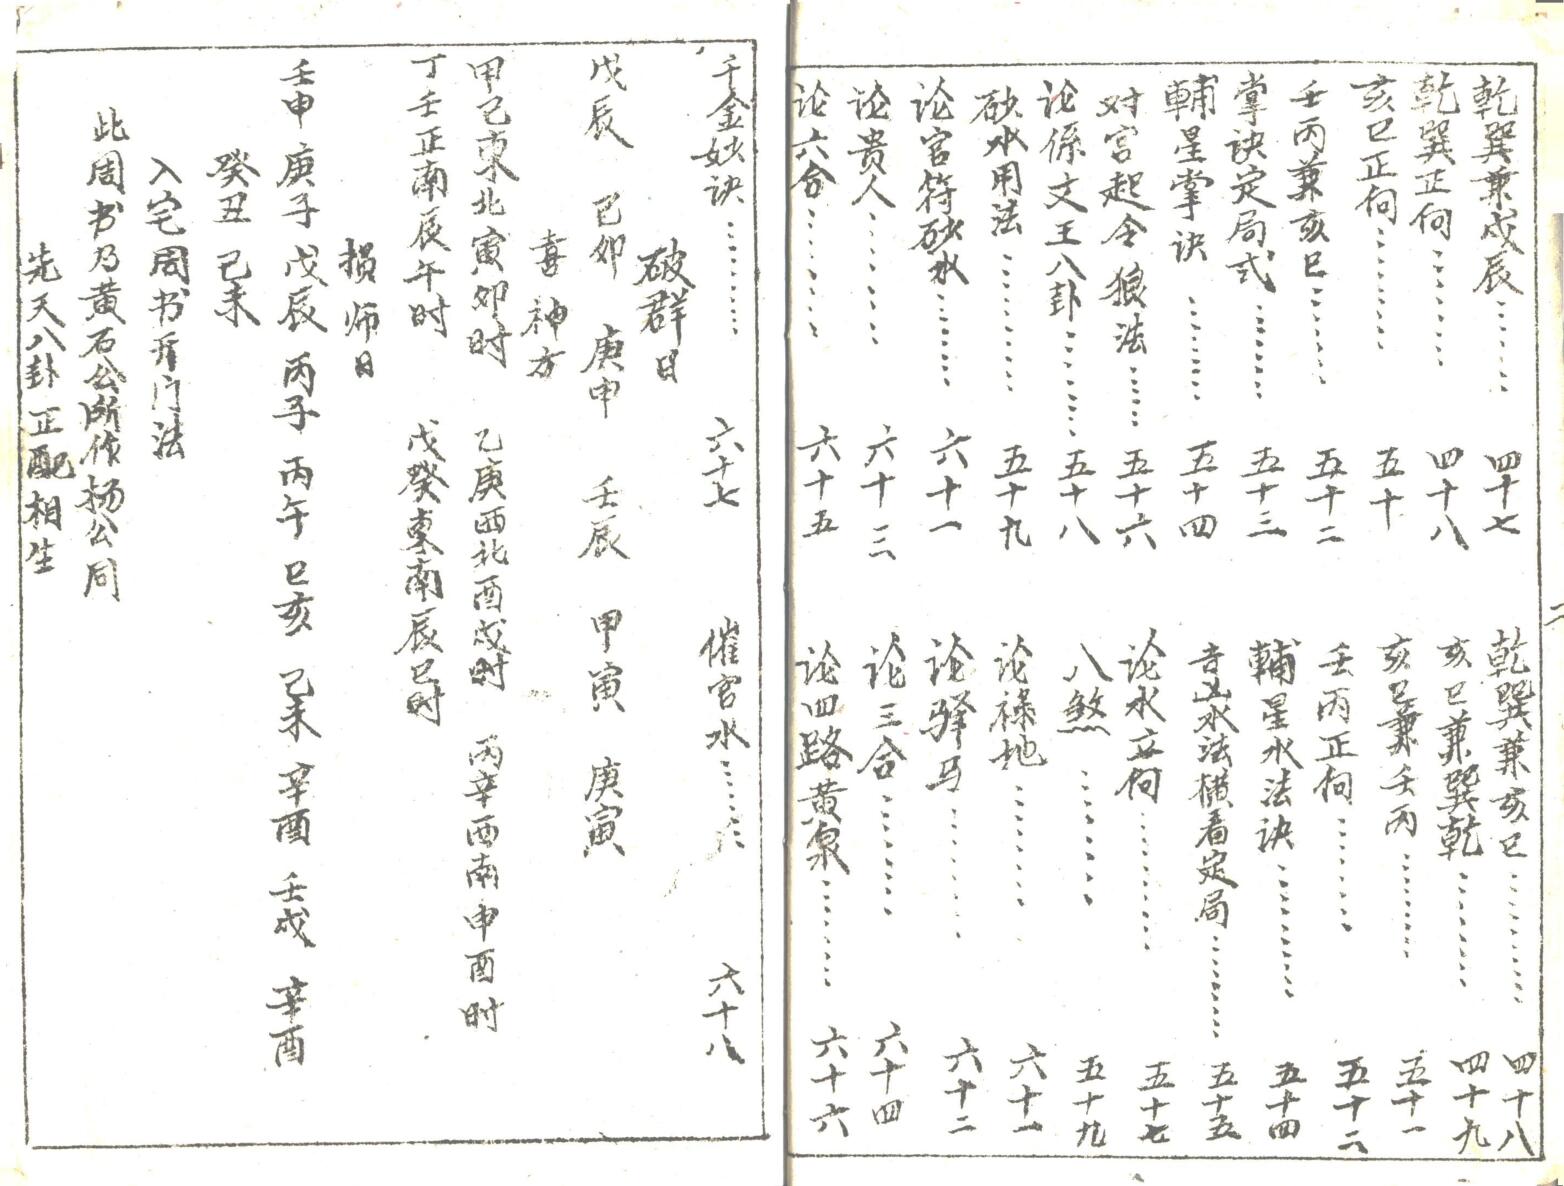 乾巽兼戍辰………四十七
乾巽兼亥巳………四十八
乾巽正向………四十八
亥巳兼巽乾………四十九
亥巳正向………五十
亥巳兼壬丙………五十一
壬丙兼亥巳………五十二
壬丙正向………五十二
掌诀定局式………五十三
輔星水法诀………五十四
輔星掌诀………五十四
吉凶水法横看定局………五十五
对宫起令狼法………五十六
论水立向………五十七
论係文王八卦………五十八
八煞………五十九
砂水用法………五十九
论禄地………六十一
论官符砂水………六十一
论驿马………六十二
论贵人………六十三
论三合………六十四
论六合………六十五
论四路黄泉………六十六
二
千金妙诀………六十七
催官水………六十八
破群日
戊辰 己卯 庚申 壬辰 甲寅 庚寅
喜神方
甲己東北寅卯时 乙庚西北酉戍时 丙辛西南申酉时
丁壬正南辰午时 戊癸東南辰巳时
损师日
壬申 庚子 戊辰 丙子 丙午 巳亥 己未 辛酉 壬戍 辛酉
癸丑 己未
入宅周书开门法
此周书乃黄石公所作杨公同
先天八卦正配相生